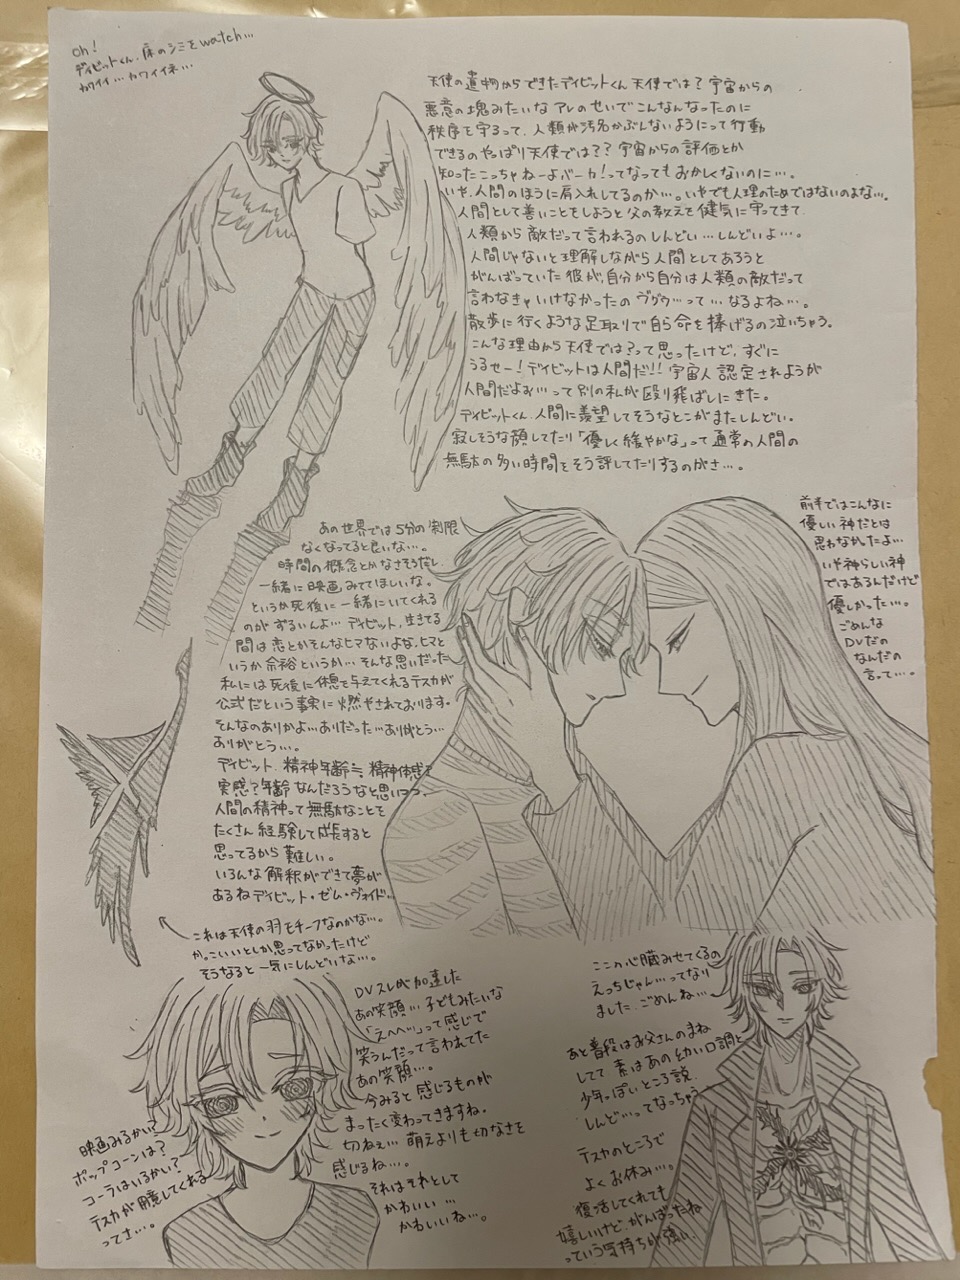 oh!
デイビットくん、床のシミをwatch…
カワイイ…カワイイネ…
天使の遺物からできたデイビットくん天使では?宇宙からの
悪意の塊みたいなアレのせいでこんなんなったのに
秩序を守るって、人類が汚名かぶんないようにって行動
できるのやっぱり天使では??宇宙からの評価とか
知ったこっちゃねーよバーカ!ってなってもおかしくないのに…。
いや、人間のほうに肩入れしてるのか…。いやでも人理のためではないのよな…。
人間として善いことをしようと父の教えを健気に守ってきて
人類から敵だって言われるのしんどい…しんどいよ…。
人間じゃないと理解しながら人間としてあろうと
がんばっていた彼が、自分から自分は人類の敵だって
言わなきゃいけなかったのヴゥゥ…って…なるよね…。
散歩に行くような足取りで自ら命を捧げるの泣いちゃう。
こんな理由から天使では?って思ったけど、すぐに
うるせー!デイビットは人間だ!!宇宙人認定されようが
人間だよぉ…って別の私が殴り飛ばしにきた。
デイビットくん、人間に羨望してそうなとこがまたしんどい。
寂しそうな顔してたり「優しく緩やかな」って通常の人間の
無駄の多い時間をそう評してたりするのがさ…。
前半ではこんなに
優しい神だとは
思わなかったよ…
いや神らしい神
ではあるんだけど
優しかった…。
ごめんな
DVだの
なんだの
言って…。
あの世界では5分の制限
なくなってると良いな…。
時間の概念とかなさそうだし
一緒に映画みててほしいな。
というか死後に一緒にいてくれる
のがずるいんよ…デイビット、生きてる
間は恋とかそんなヒマないよな、ヒマと
いうか余裕というか…そんな思いだった
私には死後に休息を与えてくれるテスカが
公式だという事実に燃やされております。
そんなのありかよ…ありだった…ありがとう…
ありがとう…。
デイビット、精神年齢≒精神体感?
実感?年齢なんだろうなと思いつつ、
人間の精神って無駄なことを
たくさん経験して成長すると
思ってるから難しい。
いろんな解釈ができて夢が
あるねデイビット・ゼム・ヴォイド…
これは天使の羽モチーフなのかな…。
かっこいいとしか思ってなかったけど
そうなると一気にしんどいな…。
DVスレが加速した
あの笑顔…子どもみたいな
「えへへッ」って感じで
笑うんだって言われてた
あの笑顔…。
今みると感じるものが
まったく変わってきますね。
切ねぇ…萌えよりも切なさを
感じるね…。
それはそれとして
かわいい…
かわいいね…。
映画みるかい?
ポップコーンは?
コーラはいるかい?
テスカが用意してくれる
ってさ…。
ここの心臓みせてくるの
えっちじゃん…ってなり
ました、ごめんね…
あと普段はお父さんのまね
してて素はあの幼い口調と
少年っぽいところ説
しんど…ってなっちゃう
テスカのところで
よくお休み…。
復活してくれても
嬉しいけど、がんばったね
っていう気持ちが強い。